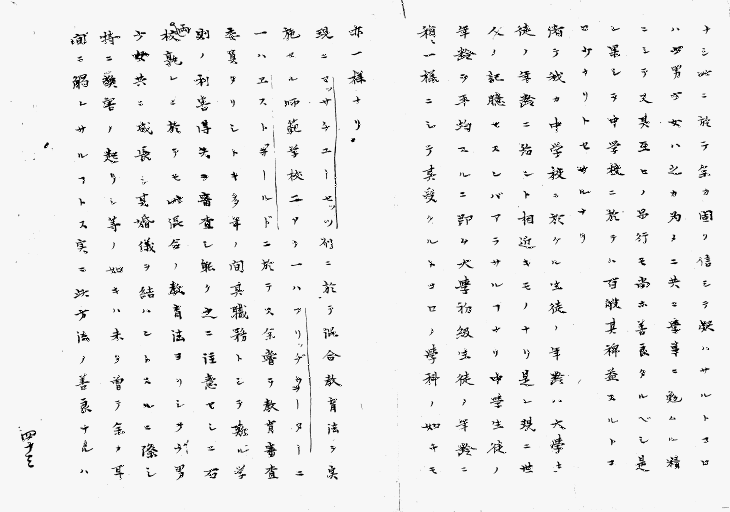 ナシ此ニ於テ余カ固リ信シテ疑ハサルトコロ
ハ男女ハ之カ為メニ共ニ學事ニ勉ムル精
ニシテ又其互ヒノ品行モ尚ホ善良タルベシ是
レ果シテ中学校ニ於テハ百般其裨益スルトコ
ロサカリトセサルナリ
備テ我カ中学校ニ於ケル生徒ノ年齢ハ大學生
徒ノ年齢ニ殆ント相近キモノナリ是レ現ニ世
人ノ記臆セスンバアラサルコナリ中學生徒ノ
年齢ヲ平均スルニ即チ大學初級生徒ノ年齢ニ
稍一様ニシテ其受クルトコロノ學科ノ如キモ
亦一様ナリ
現ニマッサチユーセッツ州ニ於テ混合教育法ヲ実
施セル師範学校二タ一ハブリッヂウヲーターニ
一ハウエストヰールドニ於テス余嘗テ教育審査
委員タリシトキ多年ノ間其職務トシテ學
則ノ利害得失ヲ審査シ転ク之ニ注意セシニ右
両校孰レニ於テモ此混合ノ教育法ヨリシテ男
女共ニ成長シ其婚儀ヲ結ハントスルニ際シ
特ニ弊害ノ起リシ等ノ如キハ未タ曽テ余カ耳
間ニ觸レサルコトス実ニ此方法ノ善良ナルハ
四十三